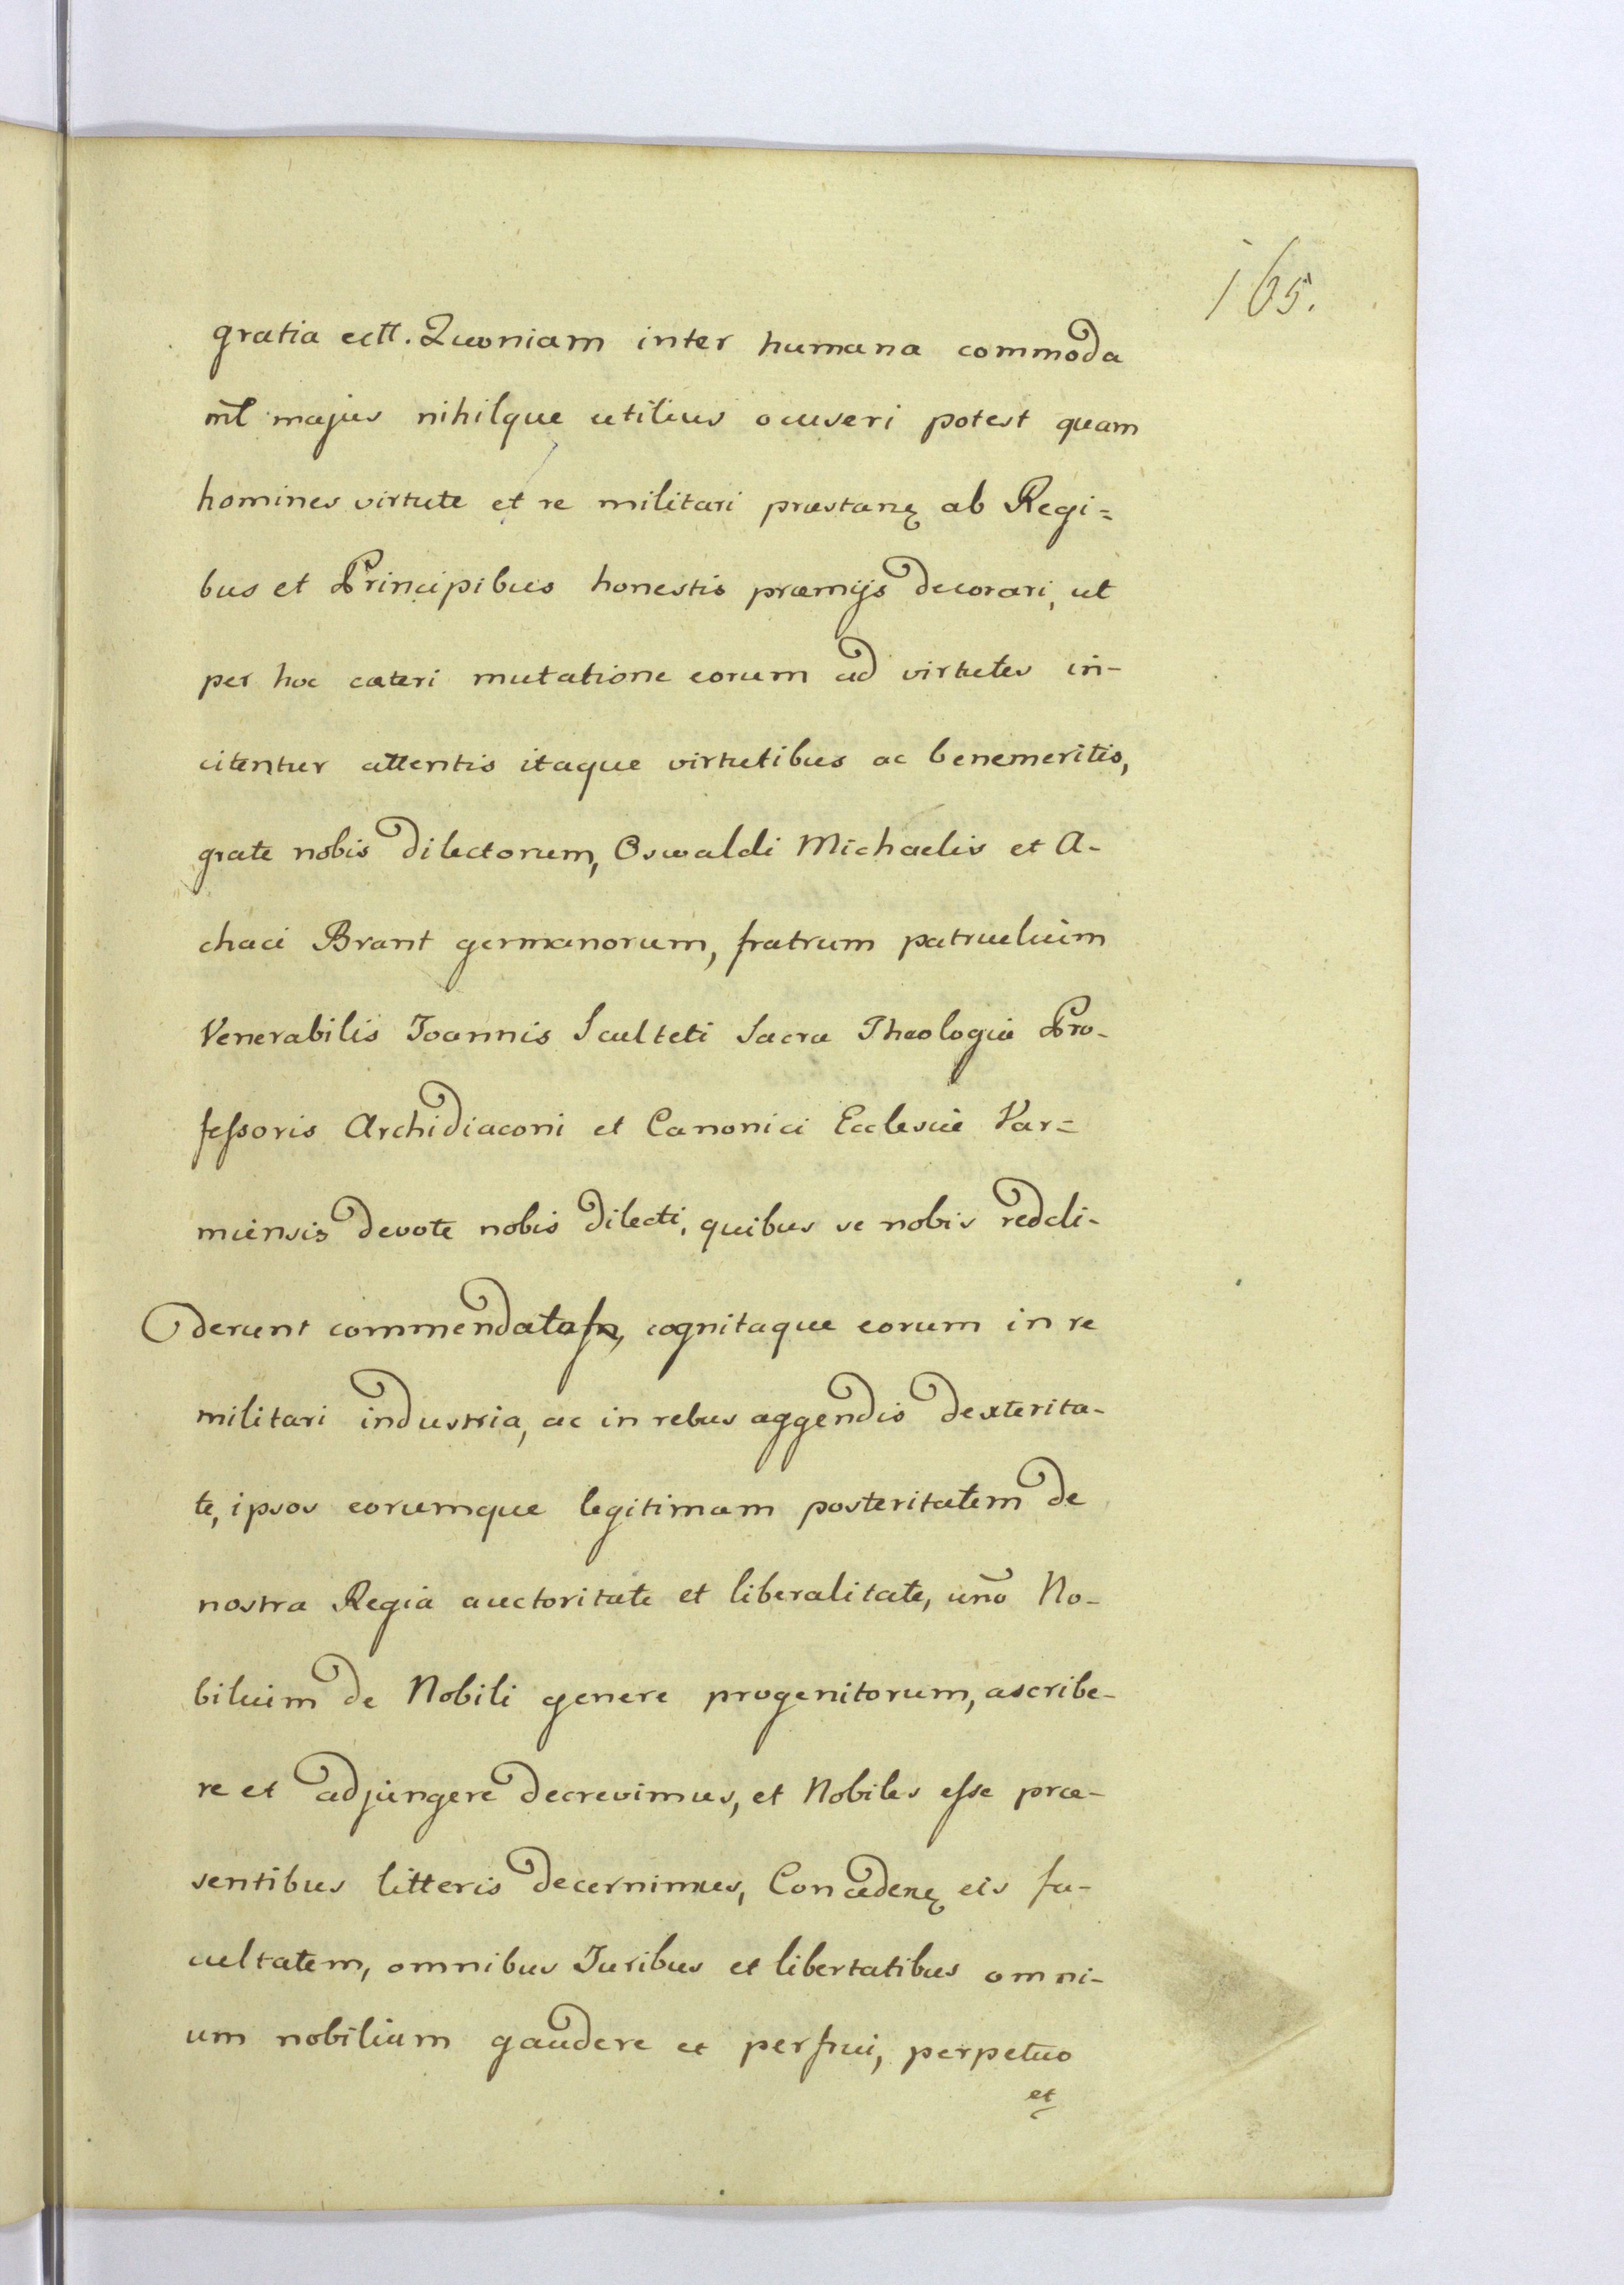 165.
gratia ectt. Quoniam inter humana commoda
nil majus nihilque utilius censeri potest quam
homines virtute et re militari præstanę ab Regi=
bus et Principibus honestis præmijs decorari, ut
per hoc cæteri mutatione eorum ad virtutes in-
citentur attentis itaque virtutibus ac benemeritis,
grate nobis dilectorum, Oswaldi Michaelis et A-
chaci Brant germanorum, fratrum patrueluim
Venerabilis Joannis Sculteti Sacræ Theologiæ Pro-
feſsoris Archidiaconi et Canonici Ecclesiæ Var=
miensis devote nobis dilecti, quibus se nobis reddi-
derunt commendatos, cognitaque eorum in re
militari industria, ac in rebus aggendis dexterita-
te, ipsos eorumque legitimam posteritatem de
nostra Regia auctoritate et liberalitate, uño No-
biluim de Nobili genere progenitorum, ascribe-
re et adjungere decrevimus, et Nobiles eſse præ-
sentibus litteris decernimus, Concedenę eis fa-
cultatem, omnibus Juribus et libertatibus omni-
um nobilium gaudere et perfrui, perpetuo
et